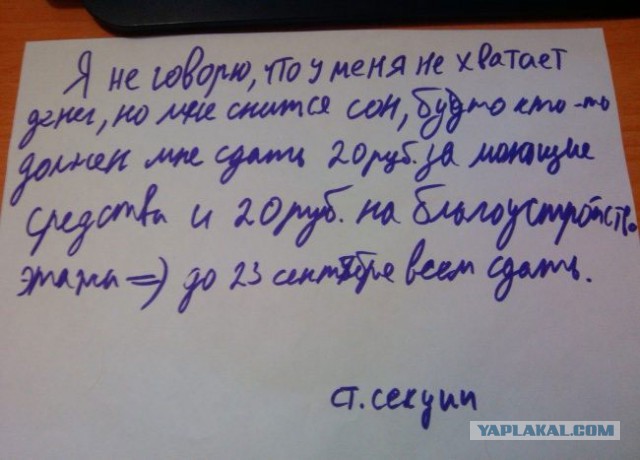 Я не говорю, что у меня не хватает
денег, но мне снится сон, будто кто-то
должен мне сдать 20 руб. за моющие
средства и 20 руб. на благоустройство
этажа =) до 23 сентября всем сдать.
ст. секции
YAPLAKAL.COM